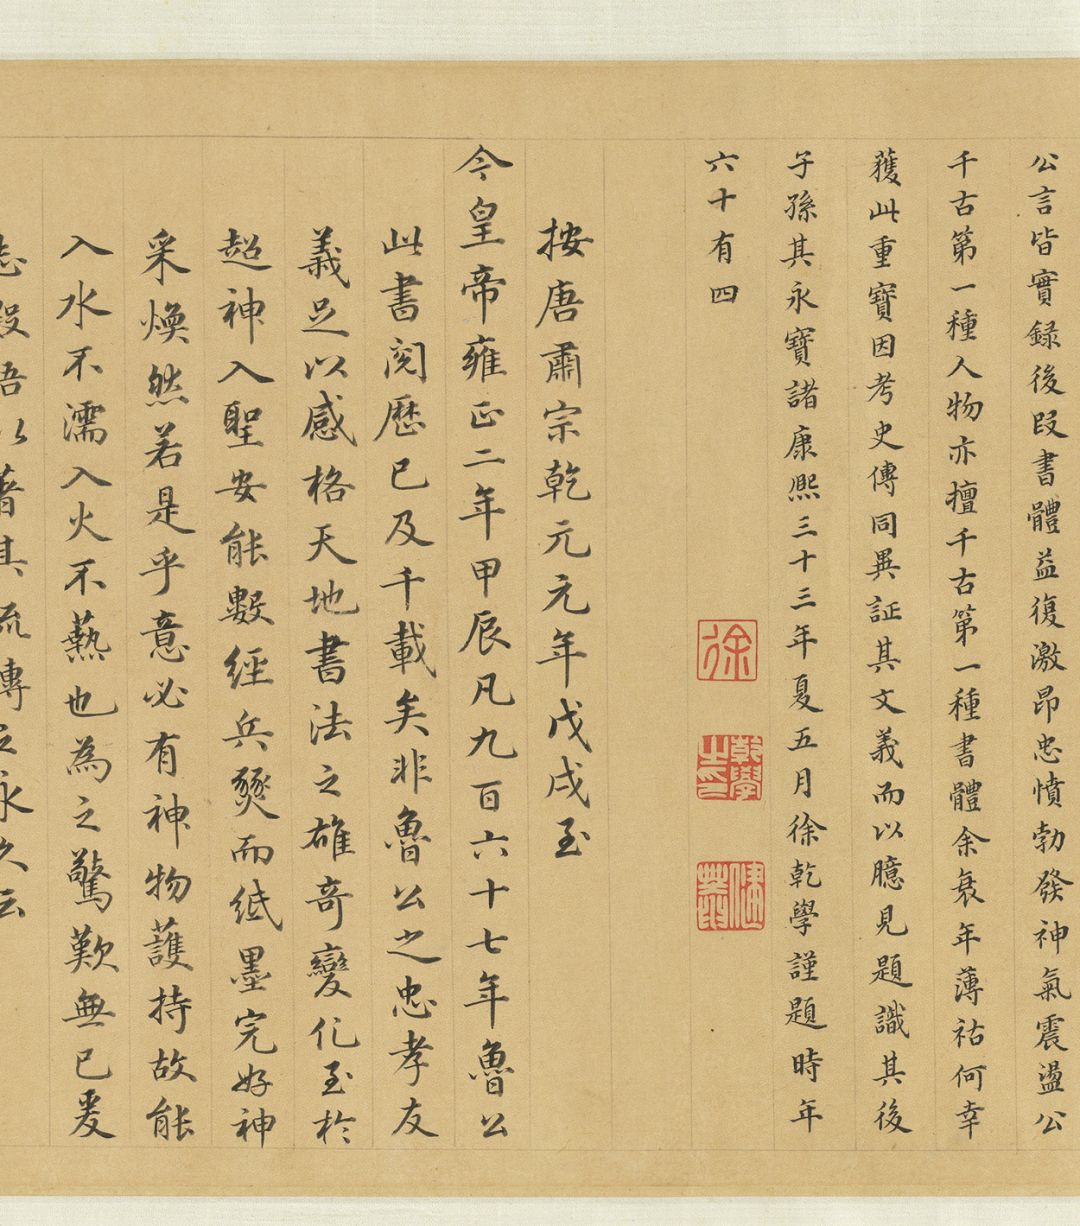 公言皆實録後段書體益復激昂忠憤勃發神氣震盪公
千古第一種人物亦擅千古第一種書體余衰年薄祜何幸
獲此重寶因考史傳同異証其文義而以臆見題識其後
子孫其永寶諸康熙三十三年夏五月徐乾學謹題時年
六十有四
徐
乾學之印
健菴
按唐肅宗乾元元年戊戌至
今皇帝雍正二年甲辰凡九百六十七年魯公
此書閱歷已及千載矣非魯公之忠孝友
義足以感格天地書法之雄奇變化至於
超神入聖安能數經兵燹而紙墨完好神
采煥然若是乎意必有神物護持故能
入水不濡入火不爇也為之驚歎無已爰
志段語以著其流傳之永久云